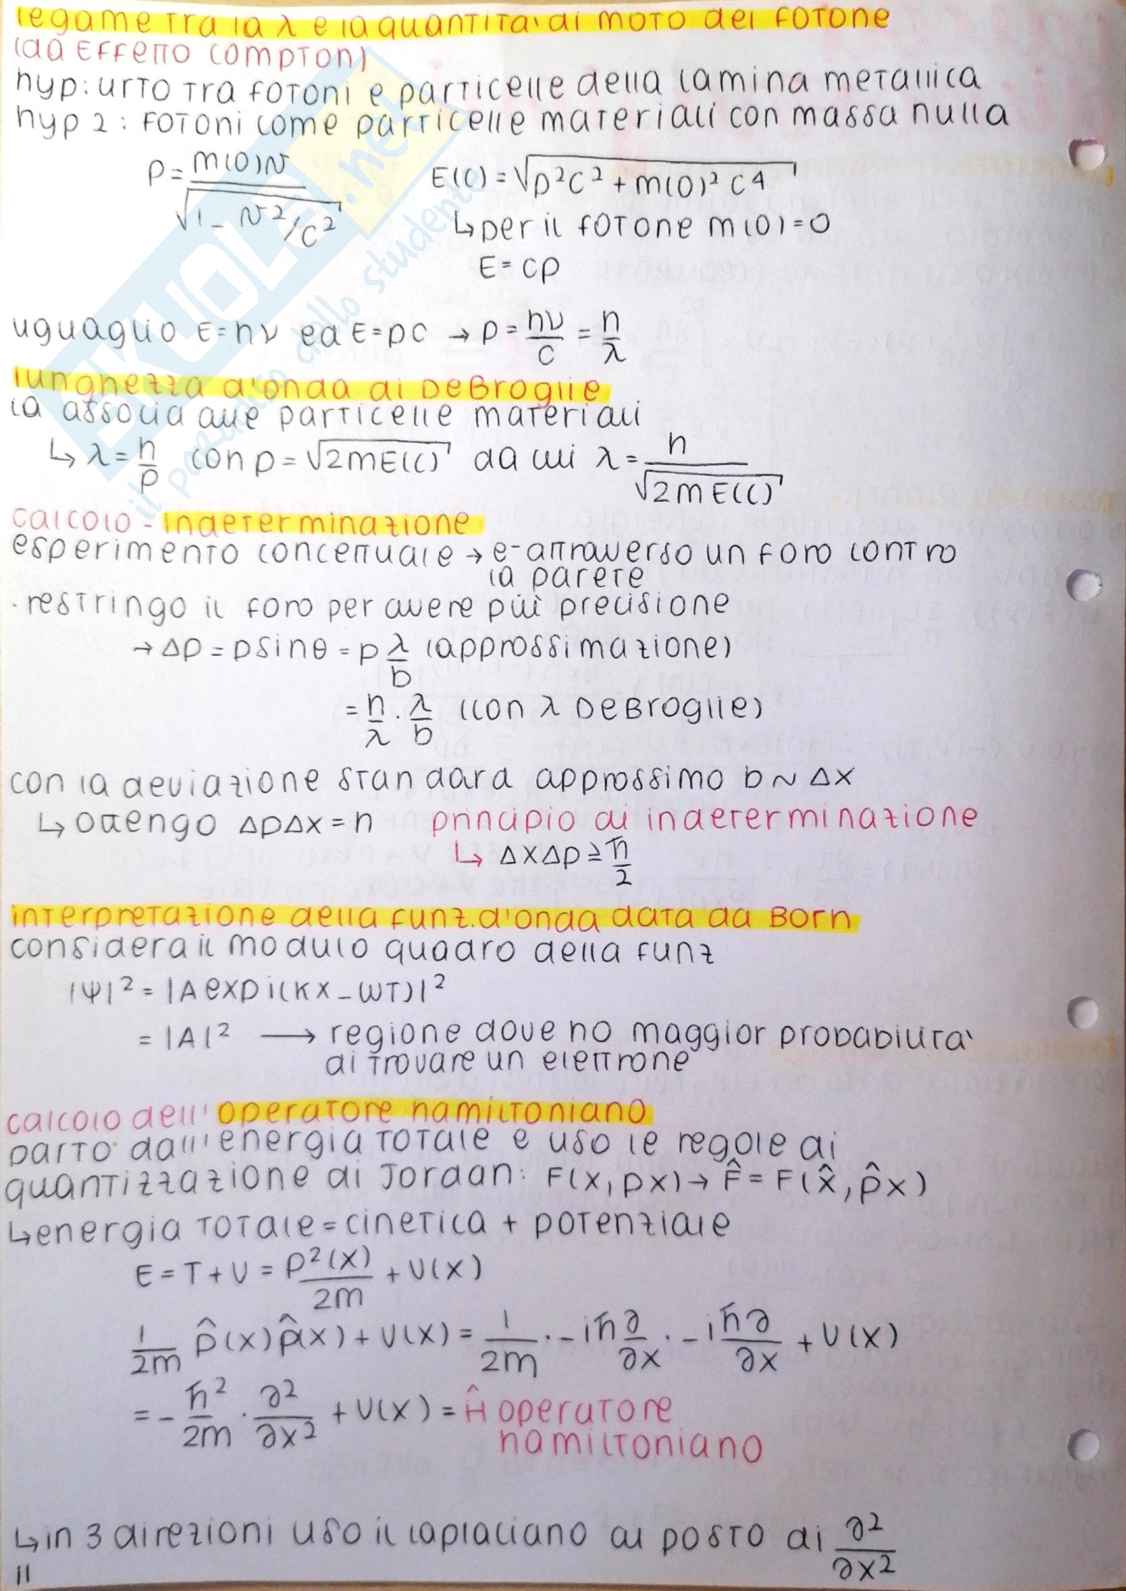 legame tra la λ e la quantita' di moto del fotone
(da effetto compton)
hyp: urto tra fotoni e particelle della lamina metallica
hyp 2 : fotoni come particelle materiali con massa nulla
p = m(0)v / √(1 - v²/c²)   E(c) = √(p²c² + m(0)² c⁴)
↳ per il fotone m(0)=0
E = cp
uguaglio E=hν ed E=pc → p = hν/c = h/λ
lunghezza d'onda di DeBroglie
la associa alle particelle materiali
↳ λ = h/p con p = √(2mE(c)) da cui λ = h/√(2mE(c))
calcolo - indeterminazione
esperimento concettuale → e- attraverso un foro contro
la parete
· restringo il foro per avere più precisione
→ Δp = p sinθ = p λ/b (approssimazione)
= h/λ · λ/b (con λ DeBroglie)
con la deviazione standard approssimo b ~ Δx
↳ ottengo ΔpΔx = h   principio di indeterminazione
↳ ΔxΔp ≥ ħ/2
interpretazione della funz. d'onda data da Born
considera il modulo quadro della funz
|Ψ|² = |A exp i(kx - ωt)|²
= |A|² → regione dove ho maggior probabilita'
di trovare un elettrone
calcolo dell' operatore hamiltoniano
parto dall'energia totale e uso le regole di
quantizzazione di Jordan: F(x, px) → F̂ = F(x̂, p̂x)
↳ energia totale = cinetica + potenziale
E = T + U = p²(x)/2m + U(x)
1/2m p̂(x) p̂(x) + U(x) = 1/2m · -iħ ∂/∂x · -iħ ∂/∂x + U(x)
= - ħ²/2m · ∂²/∂x² + U(x) = Ĥ operatore
hamiltoniano
↳ in 3 direzioni uso il laplaciano al posto di ∂²/∂x²
11
SKUOLA.net
il paradiso dello studente